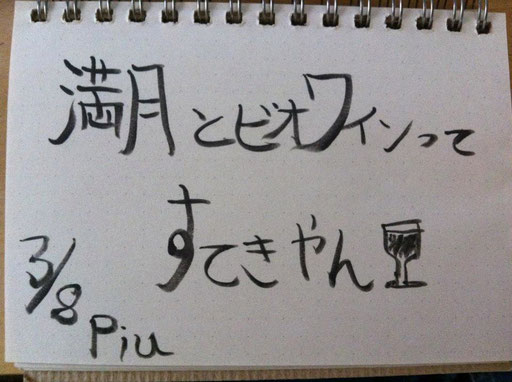 満月とビオワインって
すてきやん
3/8
Piu